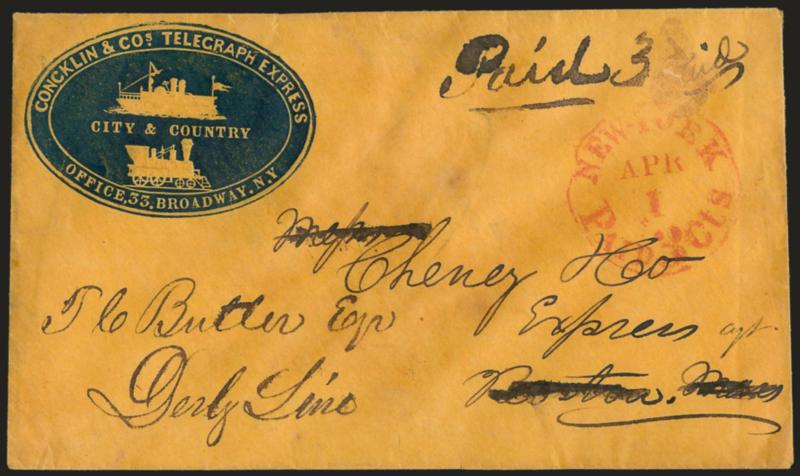 CONCKLIN & COS TELEGRAPH EXPRESS
CITY & COUNTRY
OFFICE, 33, BROADWAY. N.Y
Paid 3 Paid
NEW-YORK
APR
1
PAID 3 Cts
Messrs
Cheney & Co
T C Butler Esqr
Express agt.
Derby Line
Boston. Mass